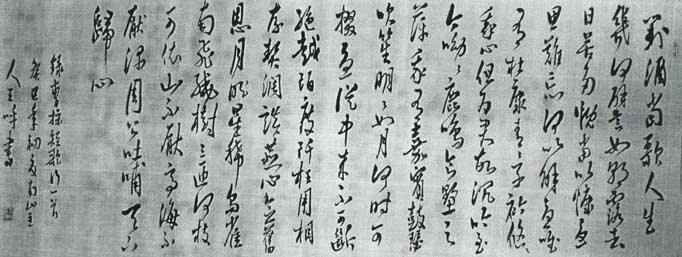 對酒當歌人生
幾何譬如朝露去
日苦多慨當以慷憂
思難忘何以解憂唯
有杜康青青子衿悠悠
我心但为君故沉吟至
今呦呦鹿鳴食野之
苹我有嘉賓鼓瑟
吹笙明明如月何时可
掇憂從中来不可断
绝越陌度阡枉用相
存契闊談燕心念舊
恩月明星稀烏雀
南飛繞樹三匝何枝
可依山不厭高海不
厭深周公吐哺天下
歸心
錄曹操短歌行一首
癸巳年初夏南山
人王書